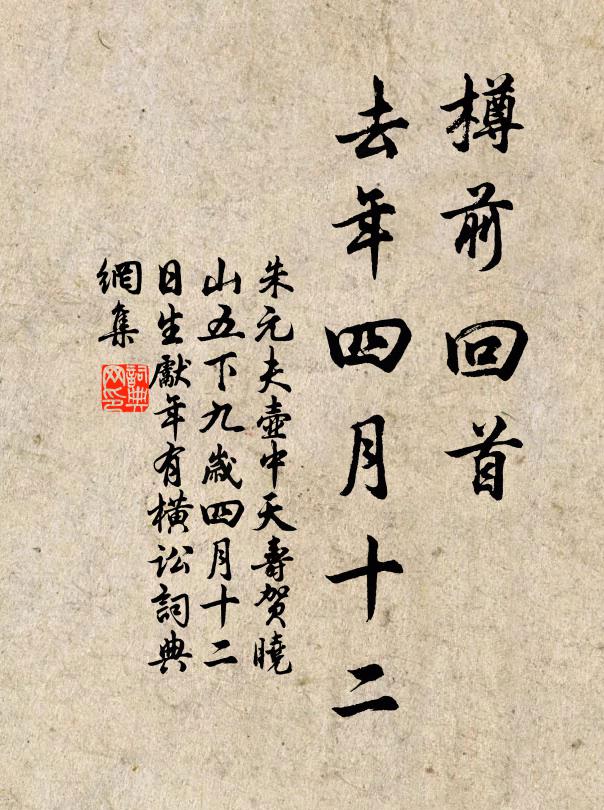 樽前回首
去年四月十二
朱元夫壺中天壽賀曉
山五下九歲四月十二
日生獻年有橫訟詞典
網集
詞典
网印